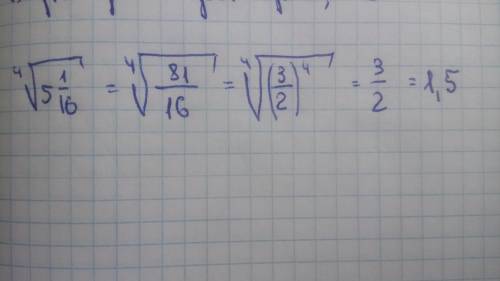 ⁴√(5 1/16) = ⁴√(81/16) = ⁴√((3/2)⁴) = 3/2 = 1,5